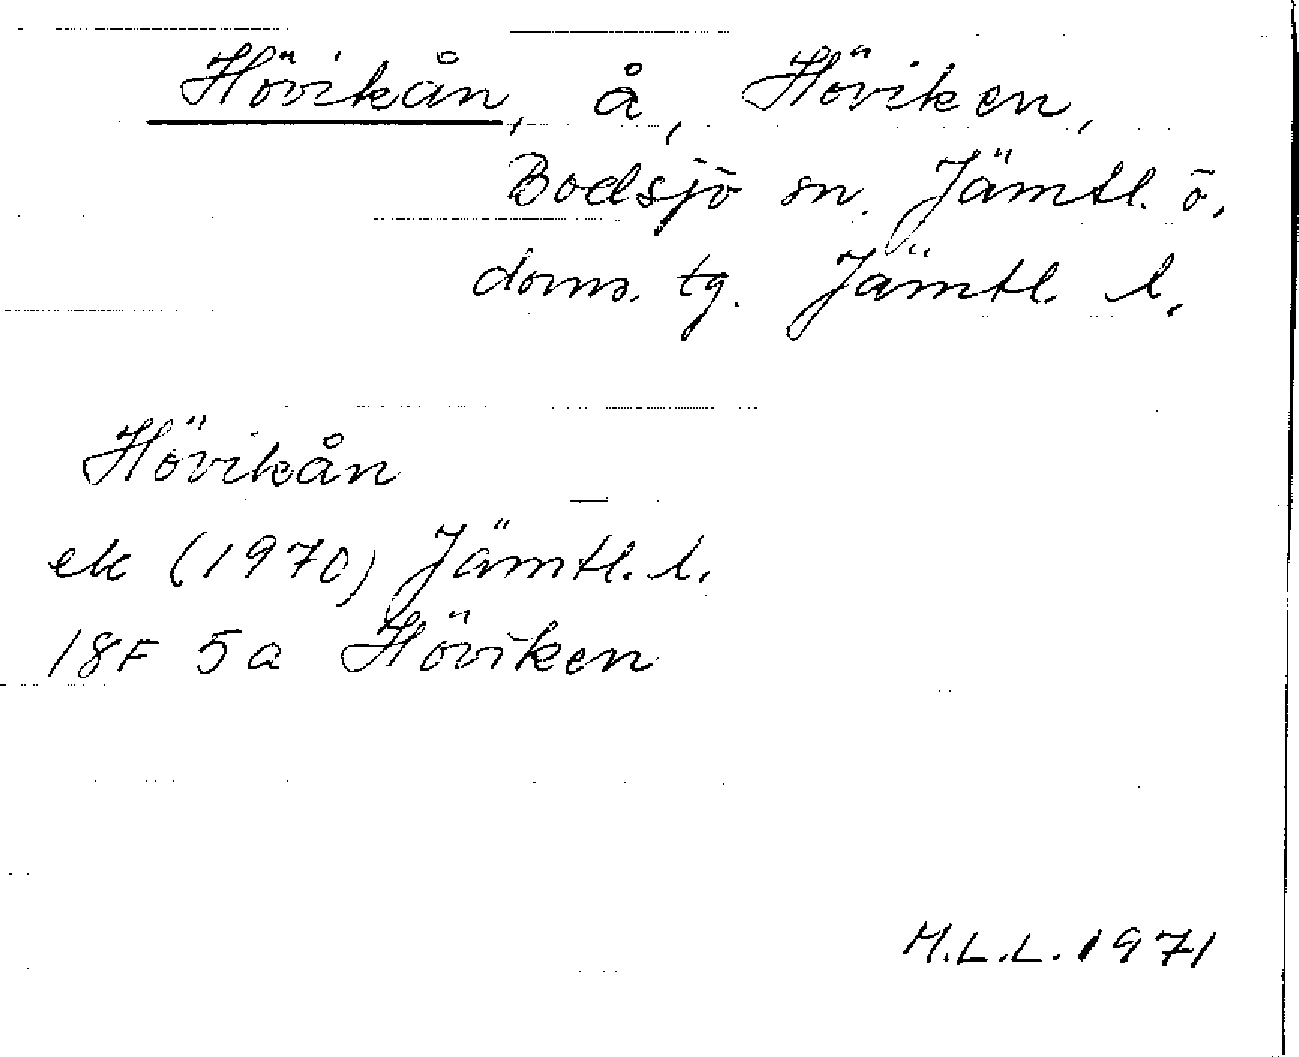 Hövikån, å, Höviken,
Bodsjö sn. Jämtl. ö.
doms. tg. Jämtl. l.
Hövikån
ek (1970) Jämtl. l.
18F 5a Höviken
M.L.L. 1971